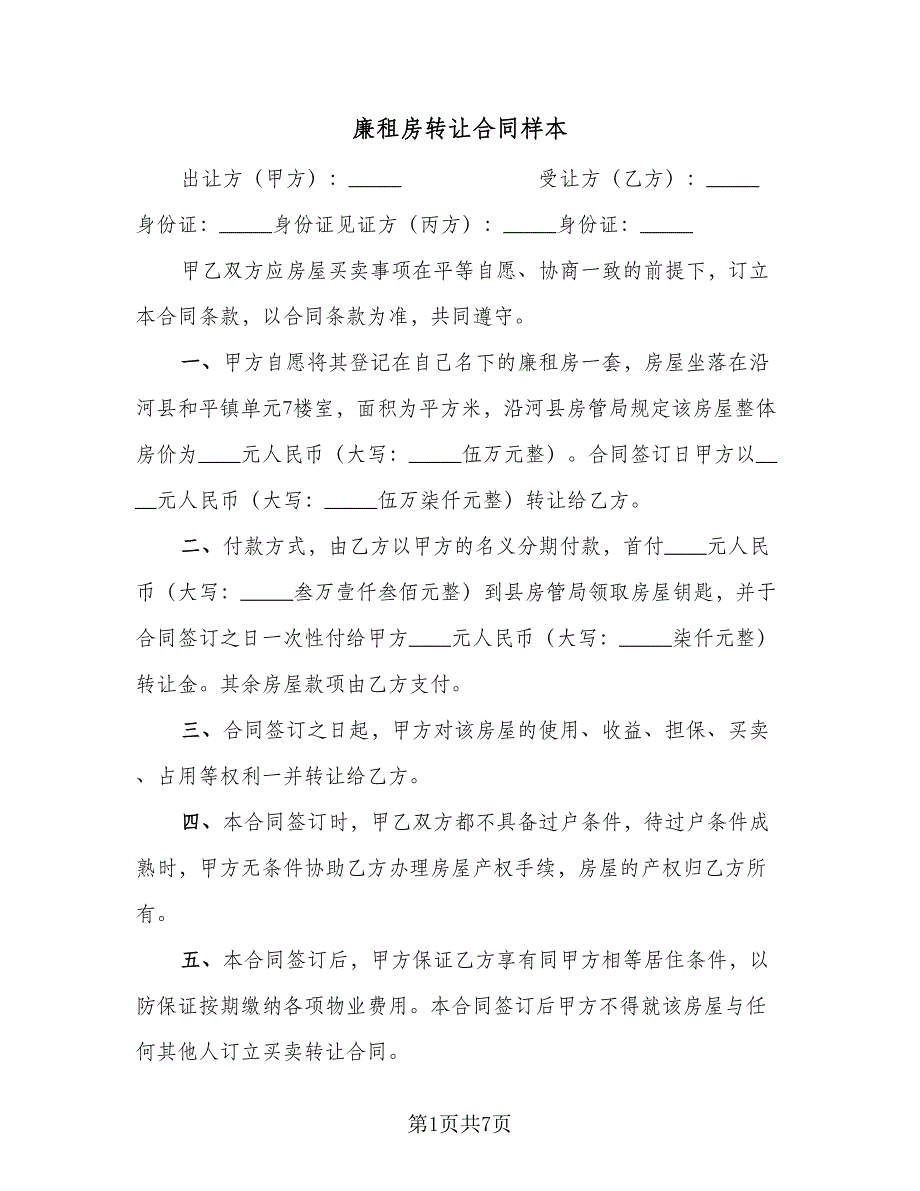 廉租房转让合同样本
出让方（甲方）：_____ 受让方（乙方）：_____
身份证：_____身份证见证方（丙方）：_____身份证：_____
甲乙双方应房屋买卖事项在平等自愿、协商一致的前提下，订立
本合同条款，以合同条款为准，共同遵守。
一、甲方自愿将其登记在自己名下的廉租房一套，房屋坐落在沿
河县和平镇单元7楼室，面积为平方米，沿河县房管局规定该房屋整体
房价为____元人民币（大写：_____伍万元整）。合同签订日甲方以__
__元人民币（大写：_____伍万柒仟元整）转让给乙方。
二、付款方式，由乙方以甲方的名义分期付款，首付____元人民
币（大写：_____叁万壹仟叁佰元整）到县房管局领取房屋钥匙，并于
合同签订之日一次性付给甲方____元人民币（大写：_____柒仟元整）
转让金。其余房屋款项由乙方支付。
三、合同签订之日起，甲方对该房屋的使用、收益、担保、买卖
、占用等权利一并转让给乙方。
四、本合同签订时，甲乙双方都不具备过户条件，待过户条件成
熟时，甲方无条件协助乙方办理房屋产权手续，房屋的产权归乙方所
有。
五、本合同签订后，甲方保证乙方享有同甲方相等居住条件，以
防保证按期缴纳各项物业费用。本合同签订后甲方不得就该房屋与任
何其他人订立买卖转让合同。
第1页共7页